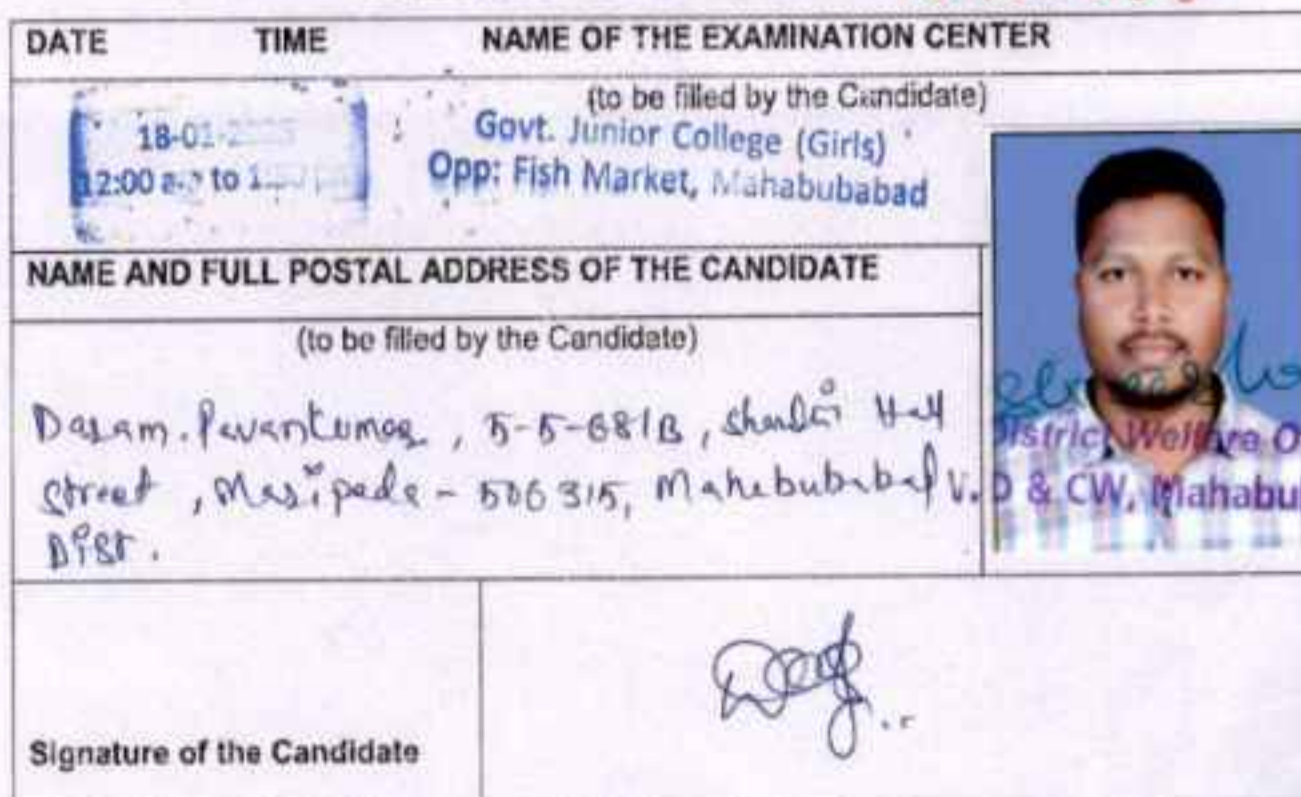 DATE TIME NAME OF THE EXAMINATION CENTER
(to be filled by the Candidate)
18-01-
12:00 to
Govt. Junior College (Girls)
Opp: Fish Market, Mahabubabad
NAME AND FULL POSTAL ADDRESS OF THE CANDIDATE
(to be filled by the Candidate)
Dasam. Pavankumar, 5-5-681B, Hall
street, - 506315, Mahabubabad
Dist.
District Welfare O
& CW, Mahabu
Signature of the Candidate